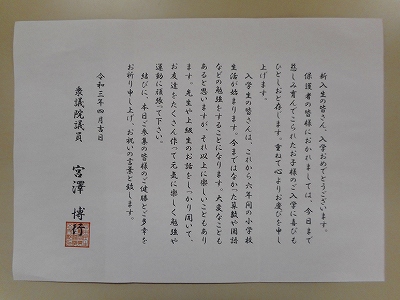 新入生の皆さん、入学おめでとうございます。
保護者の皆様におかれましては、今日まで
慈しみ育んでこられたお子様のご入学に喜びも
ひとしおと存じます。重ねて心よりお慶びを申し
上げます。
入学生の皆さんは、これから六年間の小学校
生活が始まります。今まではなかった算数や国語
などの勉強をすることになります。大変なことも
あると思いますが、それ以上に楽しいこともあり
ます。先生や上級生のお話をしっかり聞いて、
お友達をたくさん作って元気に楽しく勉強や
運動に頑張って下さい。
結びに、本日ご参集の皆様のご健勝とご多幸を
お祈り申し上げ、お祝いの言葉と致します。
令和三年四月吉日
衆議院議員
宮澤 博行